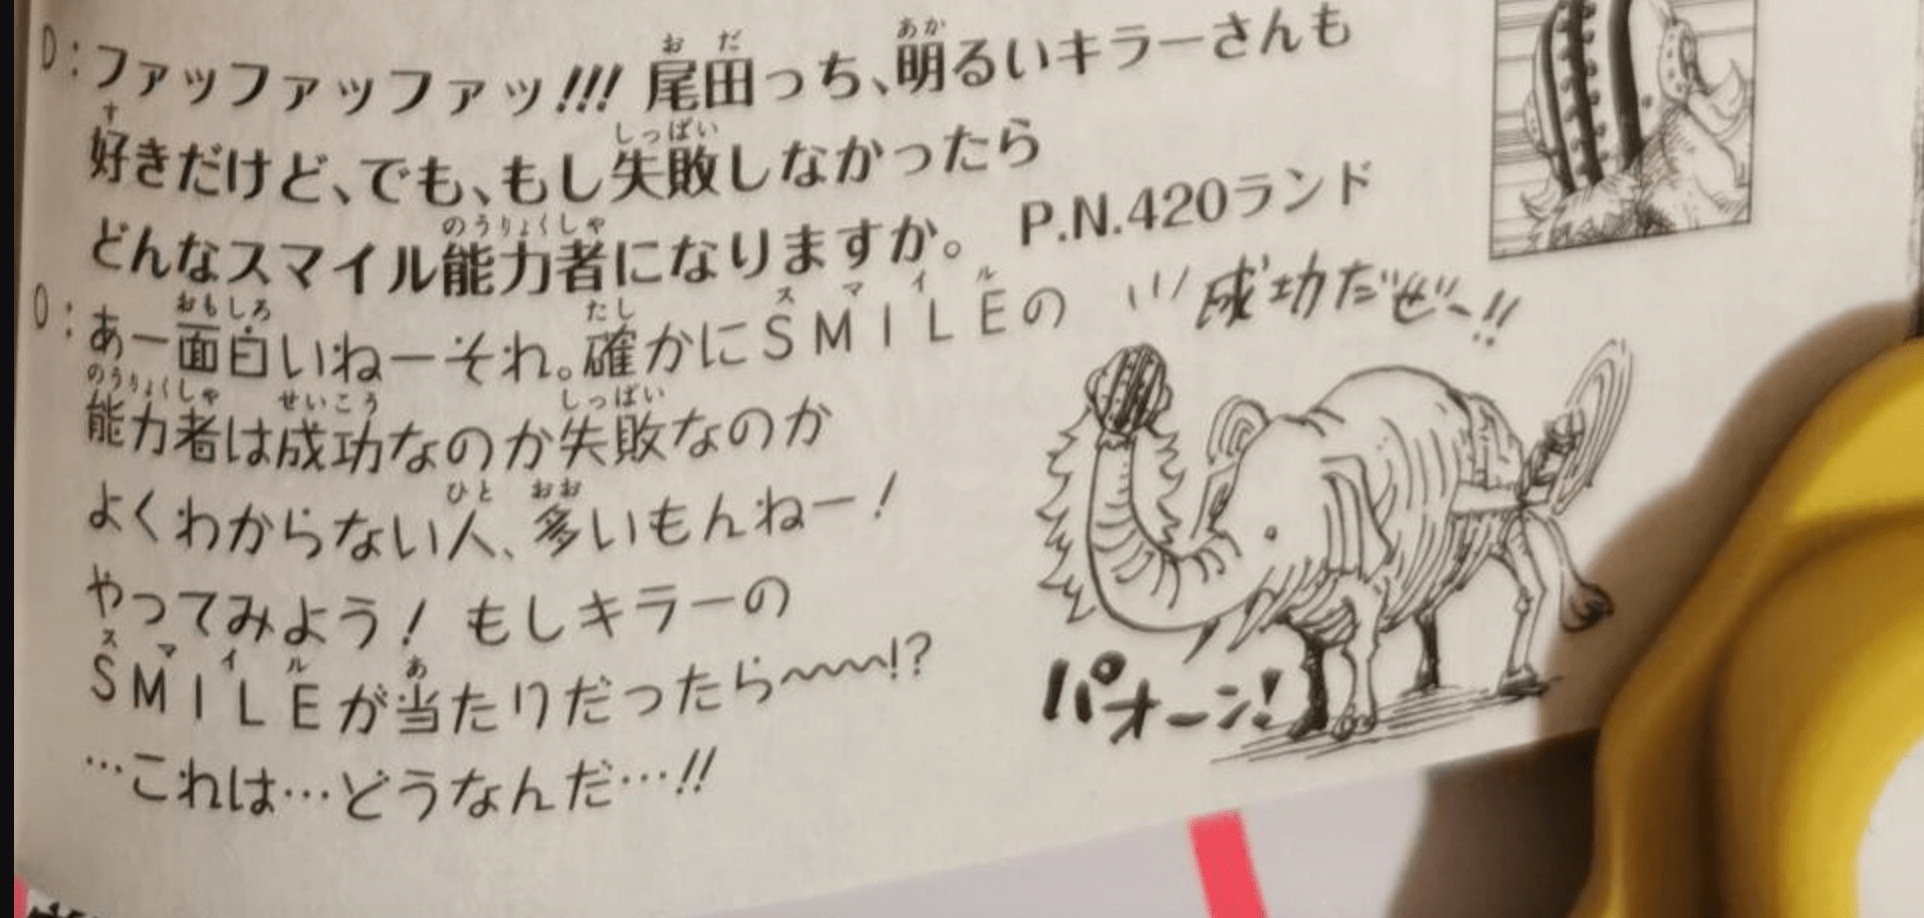 D:ファッファッファッ!!! 尾田っち、明るいキラーさんも
好きだけど、でも、もし失敗しなかったら
どんなスマイル能力者になりますか。 P.N.420ランド
O:あー面白いねーそれ。確かにSMILEの
能力者は成功なのか失敗なのか
よくわからない人、多いもんねー!
やってみよう! もしキラーの
SMILEが当たりだったら~~~!?
…これは…どうなんだ…!!
成功だぜー!!
パオーン!